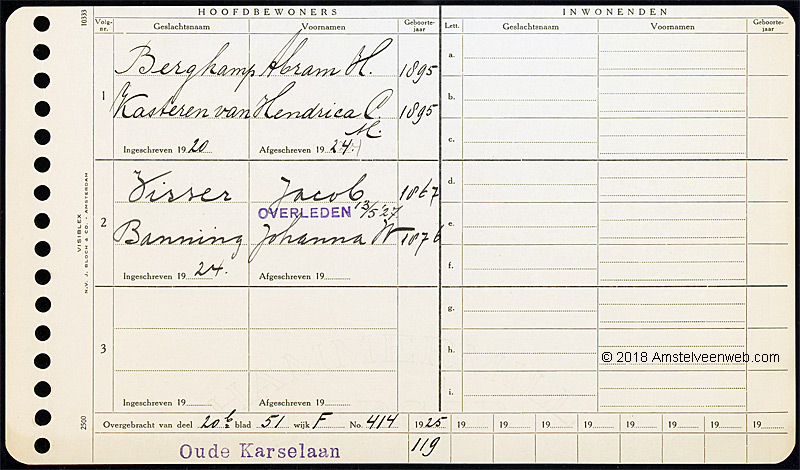 HOOFDBEWONERS INWONENDEN
10333
Volg-nr. Geslachtsnaam Voornamen Geboorte-jaar Lett. Geslachtsnaam Voornamen Geboorte-jaar
Bergkamp Abram H. 1895 a.
1 Kasteren van Hendrica C. 1895 b.
M. c.
Ingeschreven 1920 Afgeschreven 1924.
Visser Jacob 1867 d.
OVERLEDEN 13/5 '27
2 Banning Johanna W 1876 e.
Ingeschreven 1924. Afgeschreven 19 f.
g.
3 h.
© 2018 Amstelveenweb.com
Ingeschreven 19 Afgeschreven 19 i.
VISIBLEX
N.V. J. BLOCH & CO. - AMSTERDAM
2500
Overgebracht van deel 20b blad 51 wijk F No. 414 1925 19 19 19 19 19 19 19 19
Oude Karselaan 119